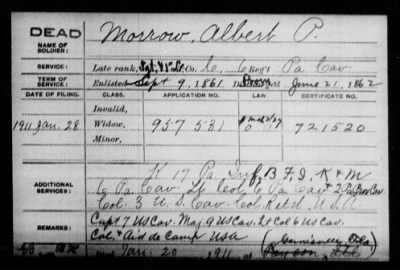 DEAD
NAME OF SOLDIER: Morrow, Albert P.
SERVICE: Late rank, Sgt, 1st Lt Co. C, 6 Reg't Pa. Cav.
TERM OF SERVICE: Enlisted Sept 9, 1861 June 21, 1862
DATE OF FILING. CLASS. APPLICATION NO. LAW. CERTIFICATE NO.
Invalid,
1911 Jan. 28 Widow, 957581 721520
Minor,
K 17 Pa. Inf, B F, I, K & M
ADDITIONAL SERVICES: 6 Pa. Cav Lt Col 6 Pa Cav & 2 Pa Prov Cav
Col. 3 U.S. Cav Col. Retd. U.S.A
REMARKS: Capt 7 US Cav. Maj 9 US Cav. Lt Col 6 US Cav.
Col & Aid de Camp USA Gainesville Fla
Jan. 20 1911